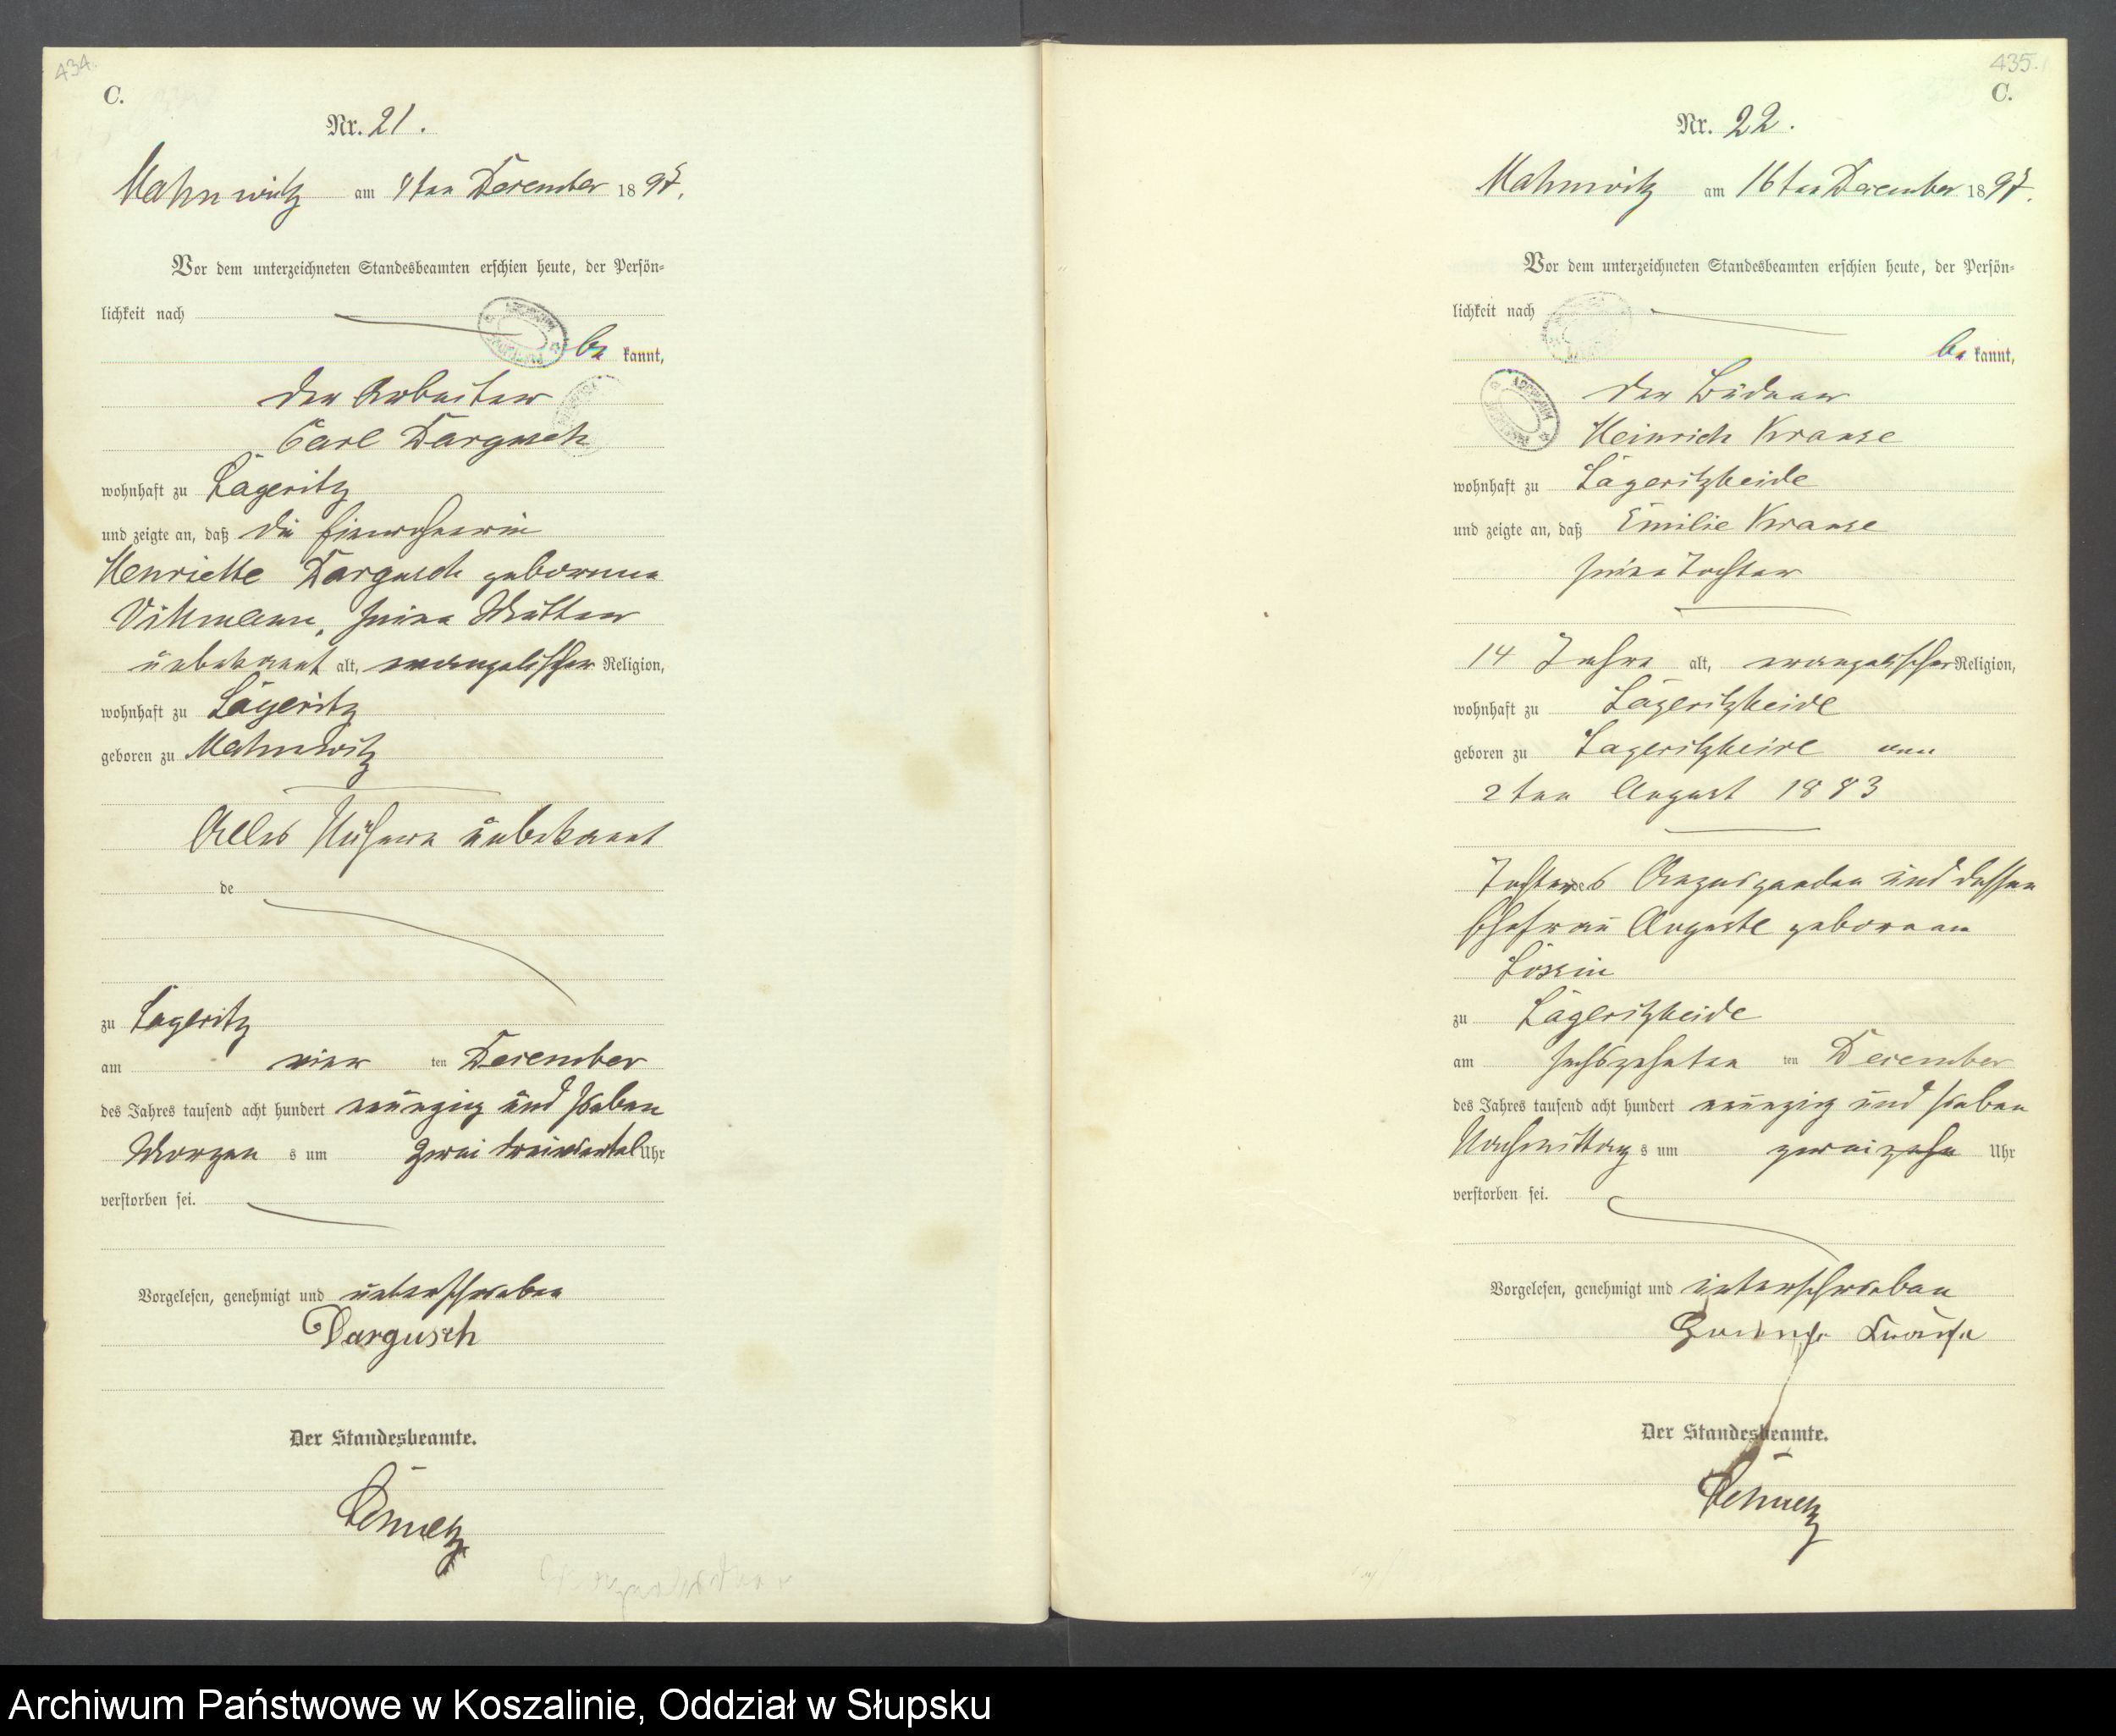 434.
C.
Nr. 21.
Mahnwitz am ten December 1897.
Vor dem unterzeichneten Standesbeamten erschien heute, der Persön-
lichkeit nach
be kannt,
der Arbeiter
Carl Dargusch
wohnhaft zu Lageritz
und zeigte an, daß die Einwohnerin
Henriette Dargusch geborene
seine Mutter
unbekannt alt, evangelischer Religion,
wohnhaft zu Lageritz
geboren zu Mahnwitz
Alles Nähere unbekannt
de
zu Lageritz
am vier ten December
des Jahres tausend acht hundert neunzig und sieben
Morgen s um zwei dreiviertel Uhr
verstorben sei.
Vorgelesen, genehmigt und unterschrieben
Dargusch
Der Standesbeamte.
435.
C.
Nr. 22.
Mahnwitz am 16ten December 1897.
Vor dem unterzeichneten Standesbeamten erschien heute, der Persön-
lichkeit nach
be kannt,
der Büdner
Heinrich Krause
wohnhaft zu Lageritzheide
und zeigte an, daß Emilie Krause
seine Tochter
14 Jahre alt, evangelischer Religion,
wohnhaft zu Lageritzheide
geboren zu Lageritzheide am
2ten August 1883
Tochter des Anzeigenden und dessen
Ehefrau Auguste geborenen
Lossin
zu Lageritzheide
am sechszehnten ten December
des Jahres tausend acht hundert neunzig und sieben
Nachmittag s um zwei Uhr
verstorben sei.
Vorgelesen, genehmigt und unterschrieben
Krause
Der Standesbeamte.
Archiwum Państwowe w Koszalinie, Oddział w Słupsku